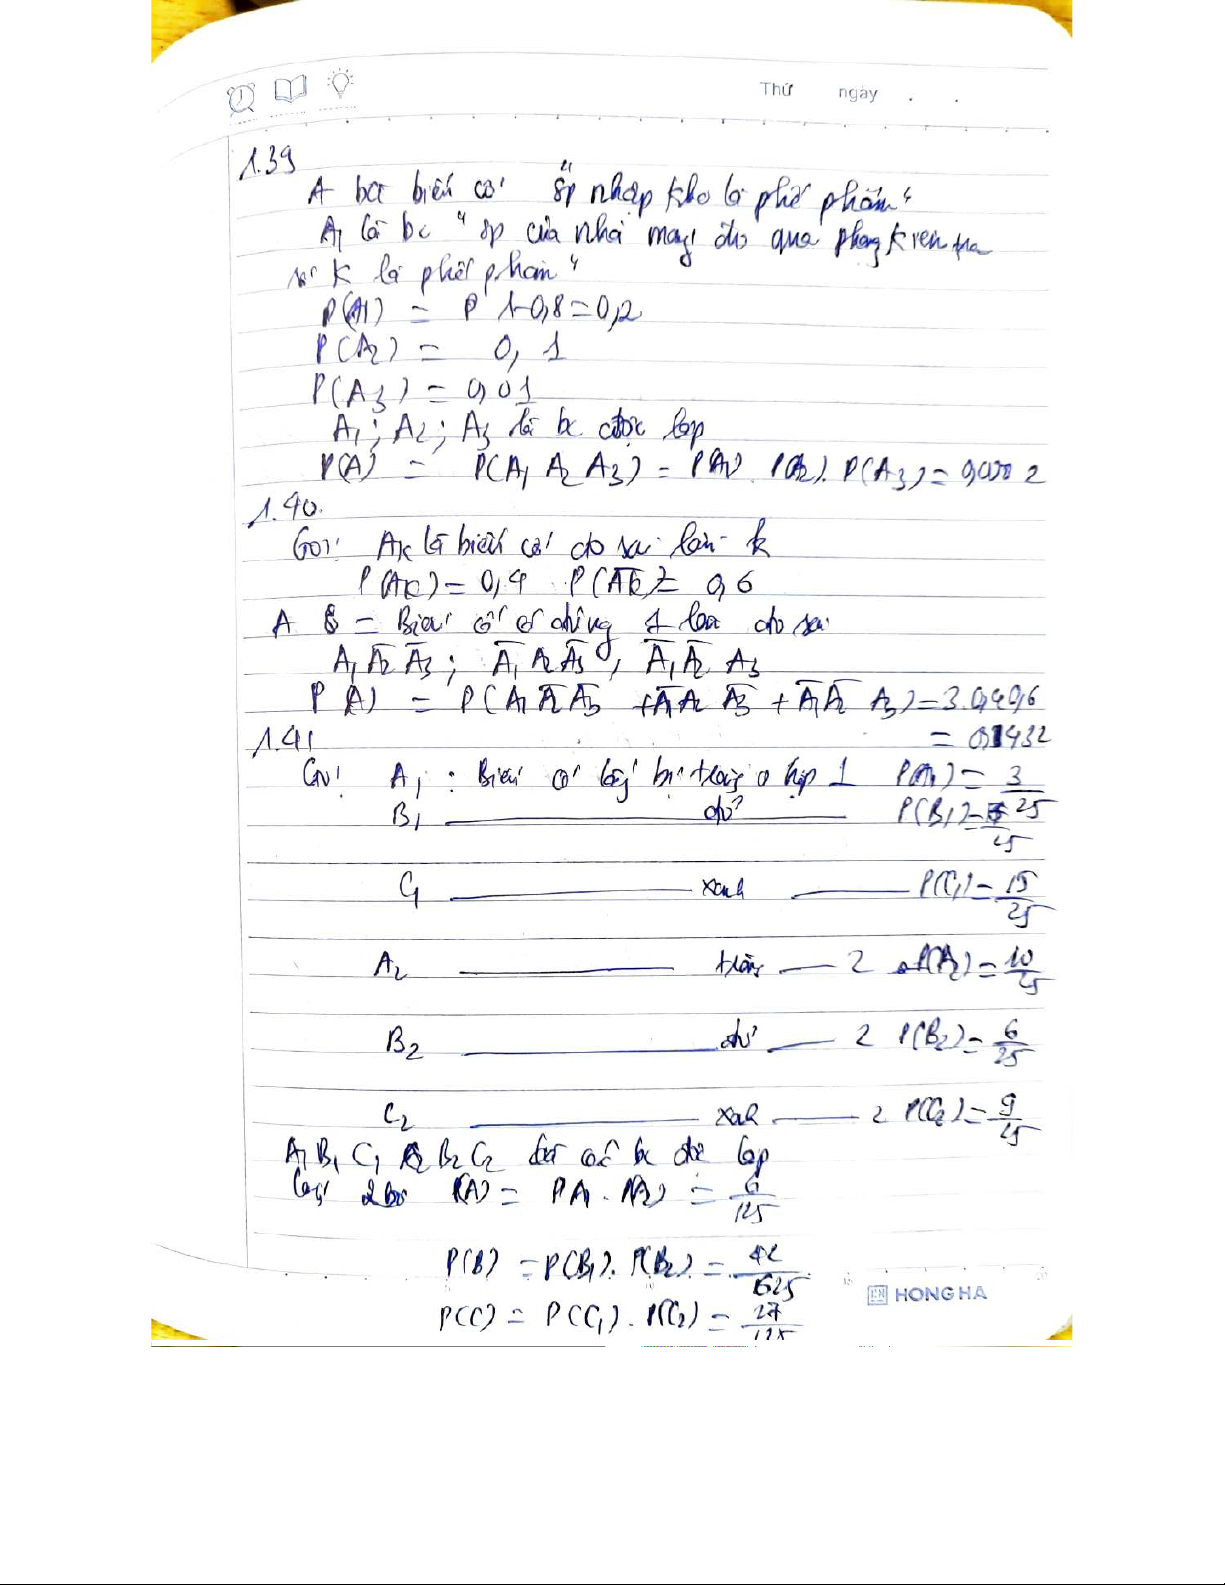 Thứ ngày . .
1.39
A bc biến cố "Sp nhập kho là phế phẩm"
A1 là bc "sp của nhà máy do qua phòng kiểm tra
k là phế phẩm"
P(A1) = P 1-0,8=0,2
P(A2) = 0,1
P(A3) = 0,01
A1; A2; A3 là bc độc lập
P(A) = P(A1 A2 A3) = P(A1). P(A2). P(A3) = 0,0002
1.40.
Gọi Ak là biến cố đo sai lần k
P(Ak) = 0,4 P(A̅k̅) = 0,6
A = Biến cố có đúng 1 lần đo sai
A1 A̅2 A̅3 ; A̅1 A2 A̅3 , A̅1 A̅2 A3
P(A) = P(A1 A̅2 A̅3 + A̅1 A2 A̅3 + A̅1 A̅2 A3) = 3.0,4.0,6
= 0,1432
1.41
Gọi A1 : Biến cố lấy bi trắng ở hộp 1 P(A1) = 3/25
B1 đỏ P(B1) = /25
C1 xanh P(C1) = 15/25
A2 trắng 2 P(A2) = 10/25
B2 đỏ 2 P(B2) = 6/25
C2 xanh 2 P(C2) = 9/25
A1 B1 C1 A2 B2 C2 các bc độc lập
P(A) = P A1 . P(A2) = 6/125
P(B) = P(B1). P(B2) = 42/625
P(C) = P(C1). P(C2) = 27/125
HONG HA